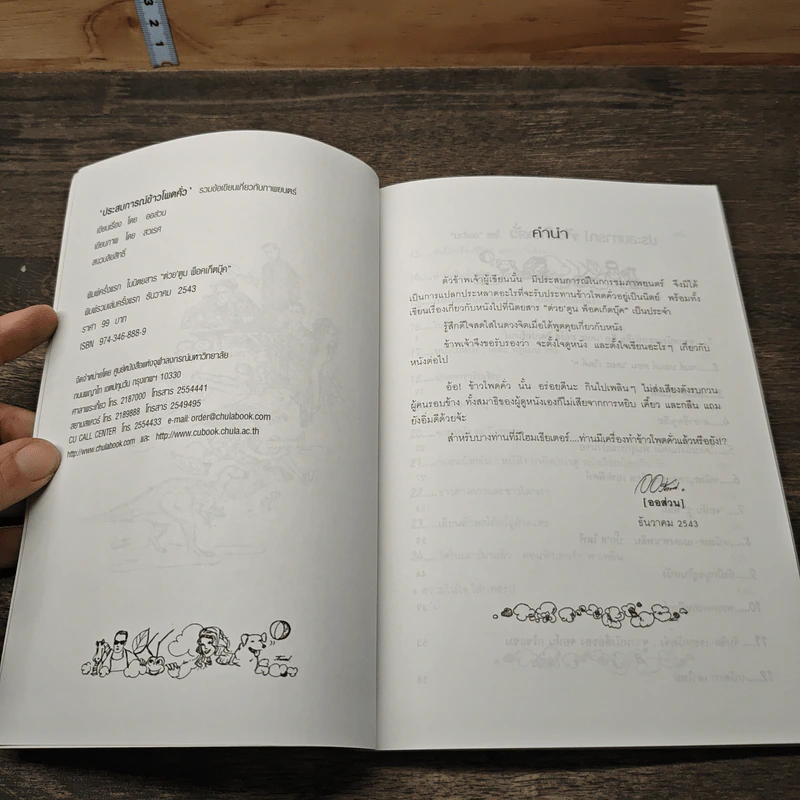 3 2 1
'ประสบการณ์ข้าวโพดคั่ว' รวมข้อเขียนเกี่ยวกับภาพยนตร์
เขียนเรื่อง โดย ออส่วน
เขียนภาพ โดย สวเรศ
สงวนลิขสิทธิ์
พิมพ์ครั้งแรก ในนิตยสาร "ต่วย'ตูน พ็อคเก็ตบุ๊ค"
พิมพ์รวมเล่มครั้งแรก ธันวาคม 2543
ราคา 99 บาท
ISBN 974-346-888-9
จัดจำหน่ายโดย ศูนย์หนังสือแห่งจุฬาลงกรณ์มหาวิทยาลัย
ถนนพญาไท เขตปทุมวัน กรุงเทพฯ 10330
ศาลาพระเกี้ยว โทร. 2187000 โทรสาร 2554441
สยามสแควร์ โทร. 2189888 โทรสาร 2549495
CU CALL CENTER โทร. 2554433 e-mail: order@chulabook.com
http://www.chulabook.com และ http://www.cubook.chula.ac.th
คำนำ
ตัวข้าพเจ้าผู้เขียนนั้น มีประสบการณ์ในการชมภาพยนตร์ จึงมิได้
เป็นการแปลกประหลาดอะไรที่จะรับประทานข้าวโพดคั่วอยู่เป็นนิตย์ พร้อมทั้ง
เขียนเรื่องเกี่ยวกับหนังไปที่นิตยสาร "ต่วย'ตูน พ็อคเก็ตบุ๊ค" เป็นประจำ
รู้สึกดีใจสดใสในดวงจิตเมื่อได้พูดคุยเกี่ยวกับหนัง
ข้าพเจ้าจึงขอรับรองว่า จะตั้งใจดูหนัง และตั้งใจเขียนอะไรๆ เกี่ยวกับ
หนังต่อไป
อ้อ! ข้าวโพดคั่ว นั้น อร่อยดีนะ กินไปเพลินๆ ไม่ส่งเสียงดังรบกวน
ผู้คนรอบข้าง ทั้งสมาธิของผู้ดูหนังเองก็ไม่เสียจากการหยิบ เคี้ยว และกลืน แถม
ยังอิ่มดีด้วยจ้ะ
สำหรับบางท่านที่มีโฮมเธียเตอร์....ท่านมีเครื่องทำข้าวโพดคั่วแล้วหรือยัง!?
[ออส่วน]
ธันวาคม 2543